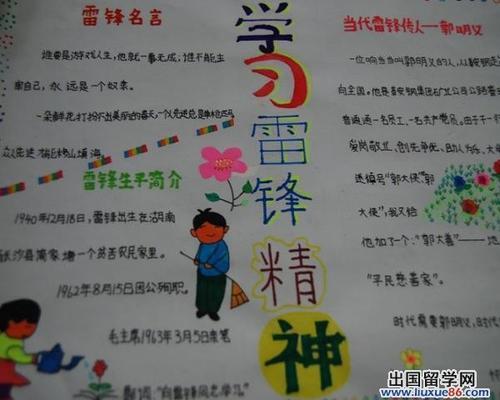 学习雷锋精神
雷锋名言
谁要是游戏人生,他就一事无成;谁不能主
宰自己,永远是一个奴隶。
一朵鲜花打扮不出美丽的春天,一个人先进总是单枪匹马
众人先进才能移山填海。
雷锋生平简介
1940年12月18日,雷锋出生在湖南
长沙县简家塘一个贫苦农民家里。
1962年8月15日因公殉职。
毛主席1963年3月5日亲笔
题词:"向雷锋同志学习"
当代雷锋传人——郭明义
一位响当当叫郭明义的人,从鞍钢走
向全国。他是鞍钢集团矿业公司公路管
普通通一名员工,一名共产党员。由于一
爱岗敬业、创先争优、助人为
送绰号"郭大侠"郭
大侠",我又给
他加了一个"郭大善"——地
"平民慈善家"。
时代需要郭明义,时
出国留学网
www.liuxue86.com